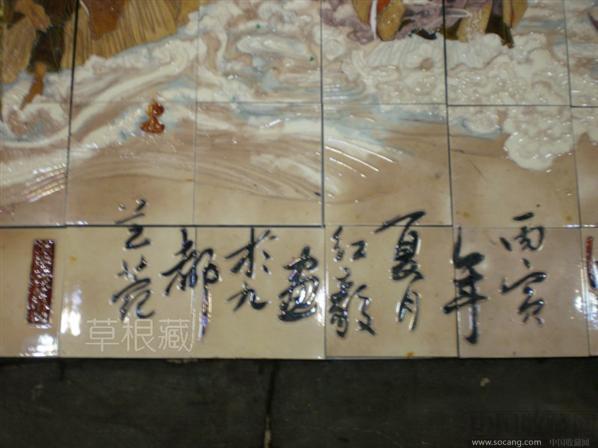 丙寅
年
夏月
红
画
於九
都
艺苑
草根藏
www.socang.com 中国收藏网